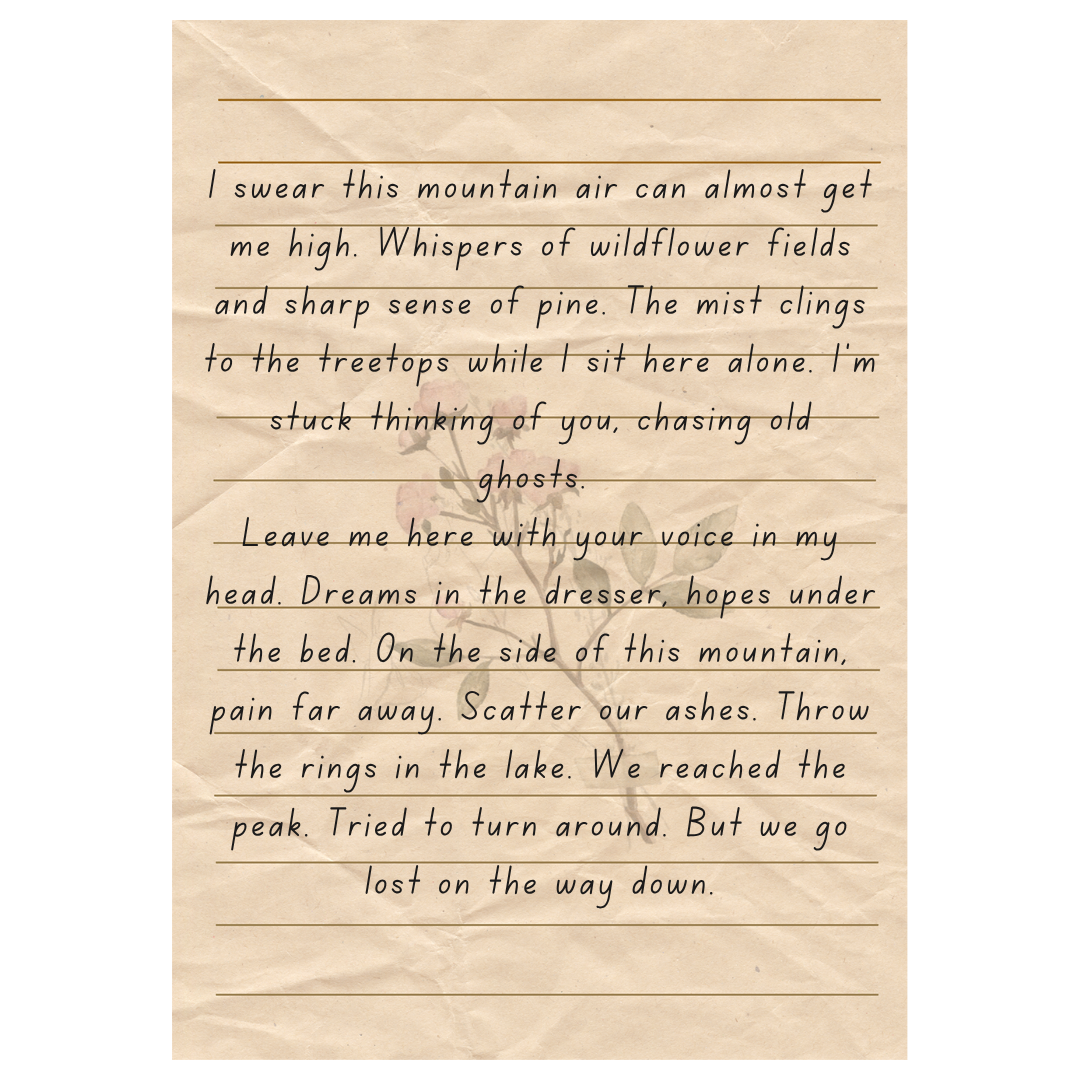 I swear this mountain air can almost get
me high. Whispers of wildflower fields
and sharp sense of pine. The mist clings
to the treetops while I sit here alone. I'm
stuck thinking of you, chasing old
ghosts.
Leave me here with your voice in my
head. Dreams in the dresser, hopes under
the bed. On the side of this mountain,
pain far away. Scatter our ashes. Throw
the rings in the lake. We reached the
peak. Tried to turn around. But we go
lost on the way down.